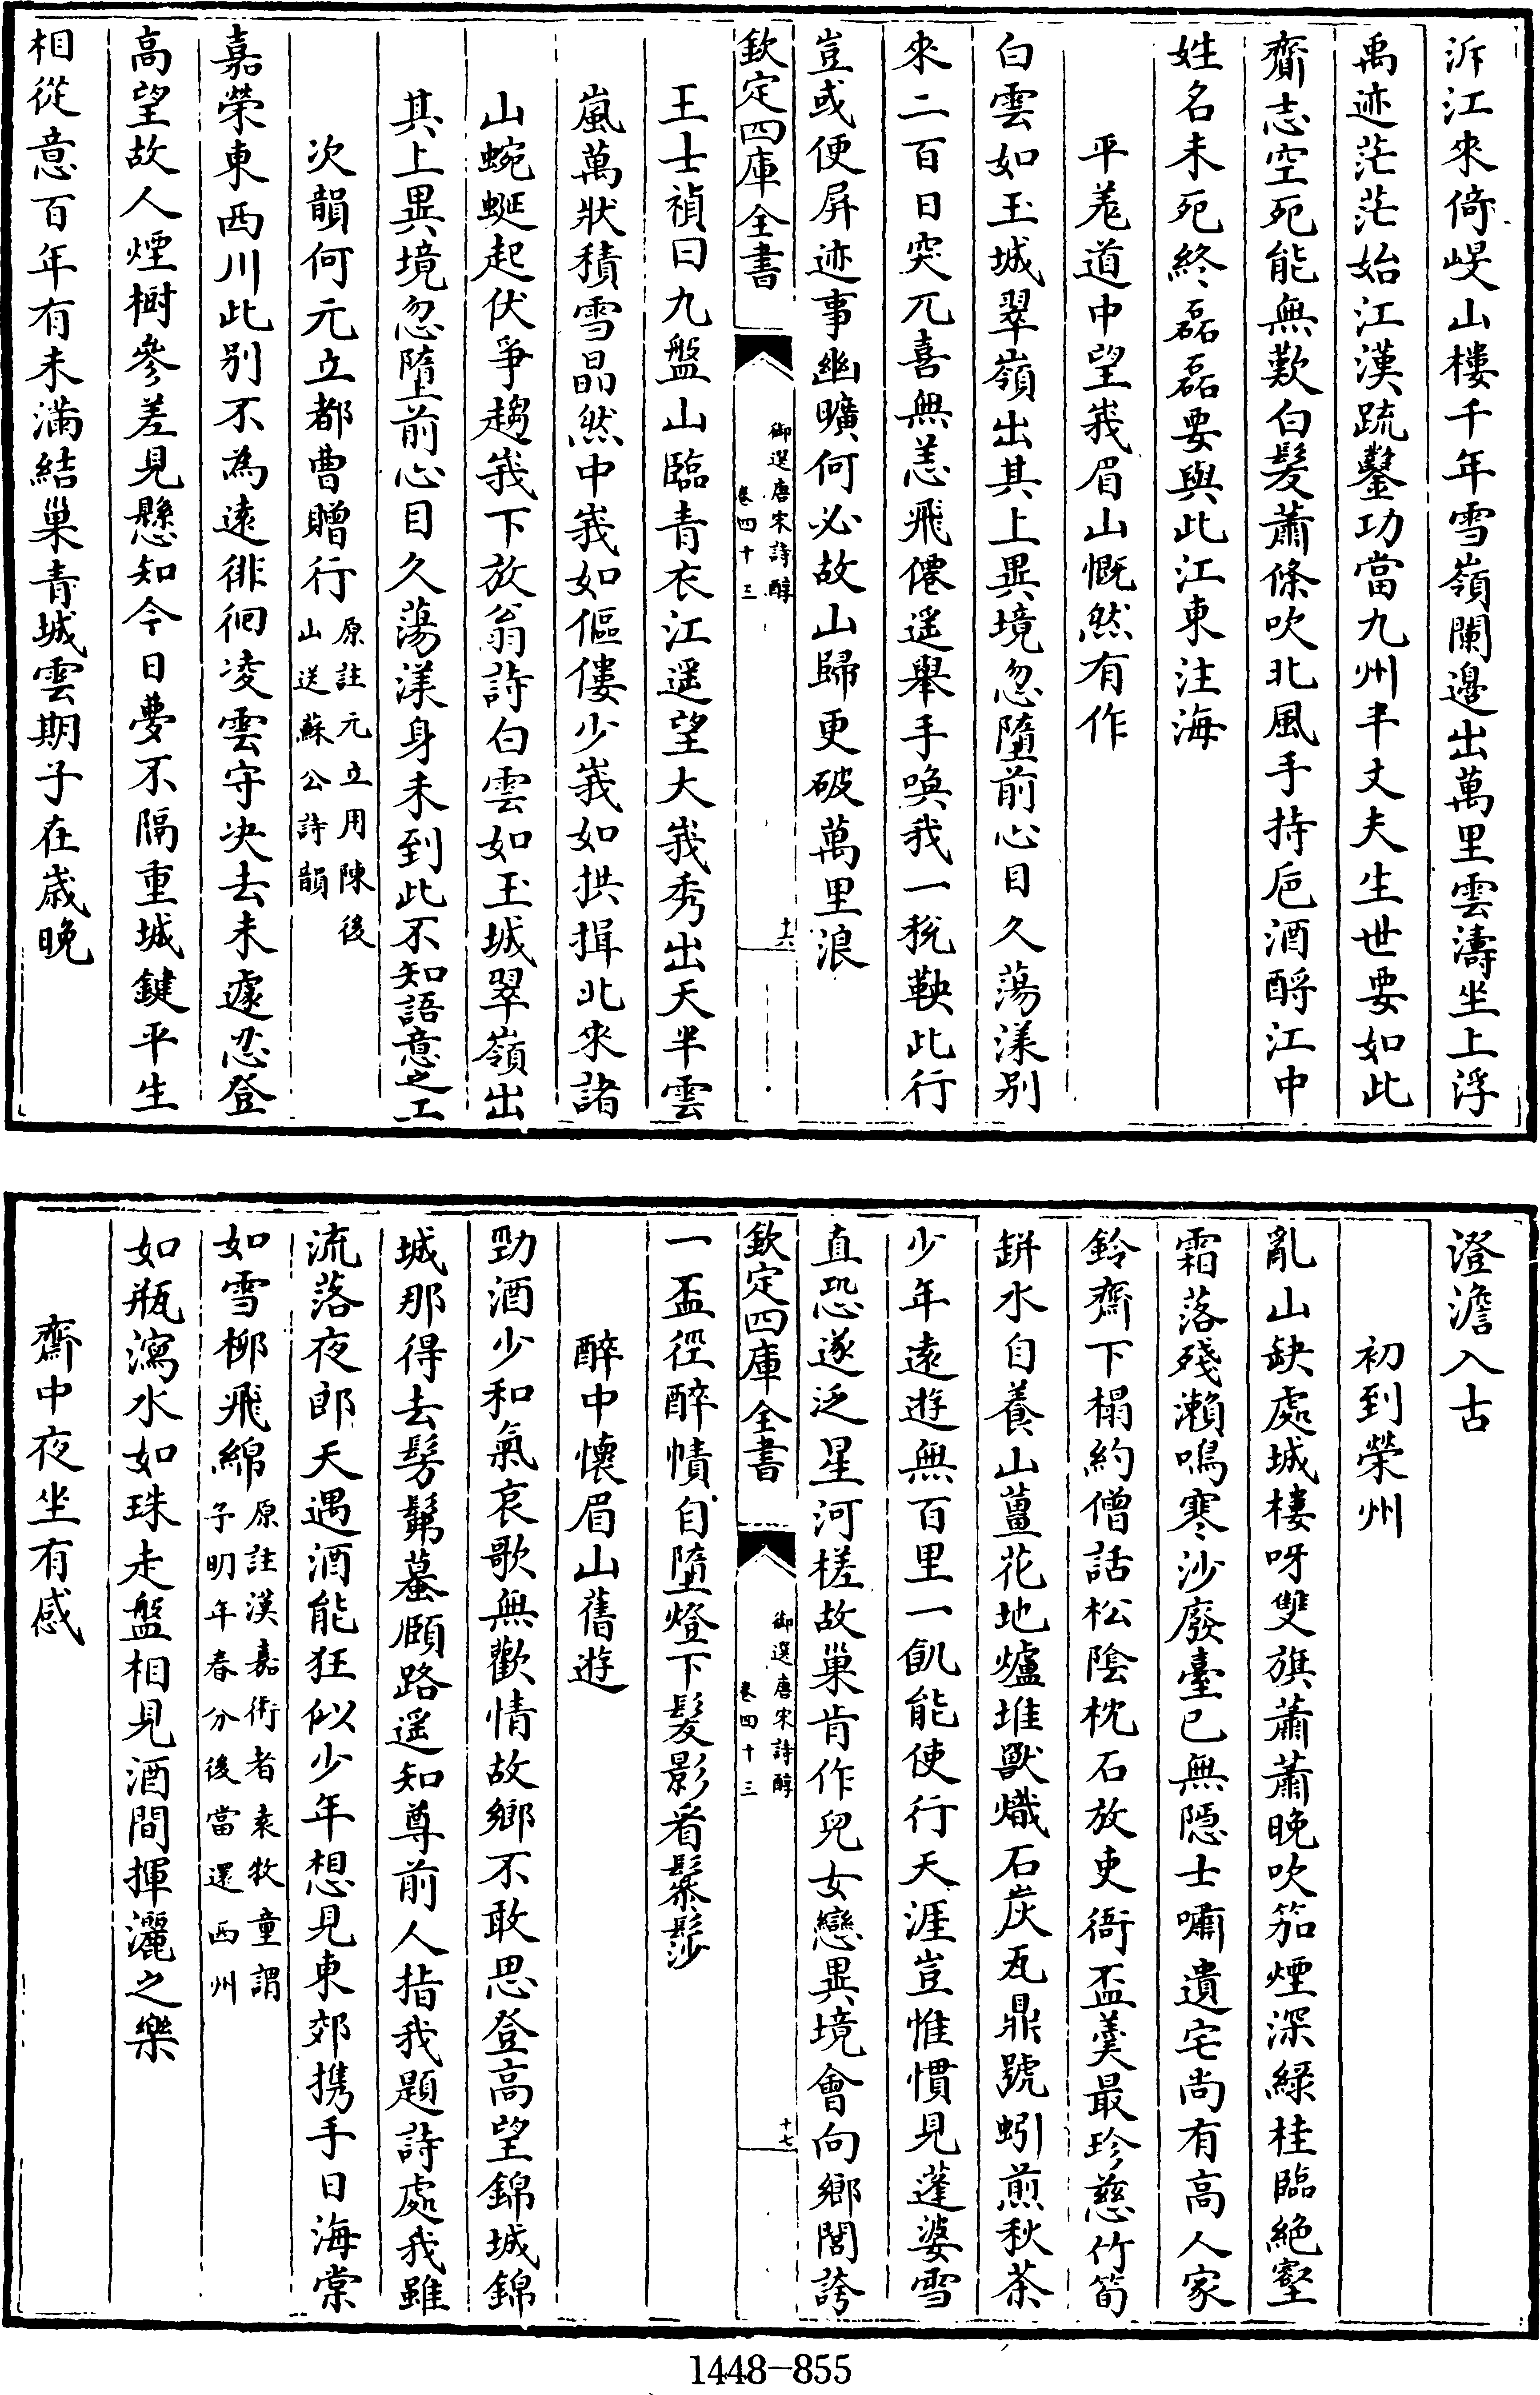 泝江來倚峻山樓千年雪嶺闌邊出萬里雲濤坐上浮
禹迹茫茫始江漢疏鑿功當九州半丈夫生世要如此
齎志空死能無歎白髮蕭條吹北風手持巵酒酹江中
姓名未死終磊磊要與此江東注海
平羌道中望峩眉山慨然有作
白雲如玉城翠嶺出其上異境忽墮前心目久蕩漾别
來二百日突兀喜無恙飛僊遥舉手喚我一稅鞅此行
豈或便屏迹事幽曠何必故山歸更破萬里浪
欽定四庫全書
御選唐宋詩醇
卷四十三
十六
王士禎曰九盤山臨青衣江遥望大峩秀出天半雲
嵐萬狀積雪晶然中峩如傴僂少峩如拱揖北來諸
山蜿蜒起伏爭趨峩下放翁詩白雲如玉城翠嶺出
其上異境忽墮前心目久蕩漾身未到此不知語意之工
次韻何元立都曹贈行
原註元立用陳後
山送蘇公詩韻
嘉榮東西川此别不為遠徘徊凌雲守决去未遽忍登
高望故人煙樹參差見懸知今日夢不隔重城鍵平生
相從意百年有未滿結巢青城雲期子在歲晚
澄澹入古
初到榮州
亂山缺處城樓呀雙旗蕭蕭晚吹笳煙深綠桂臨絶壑
霜落殘瀨鳴寒沙廢臺已無隱士嘯遺宅尚有高人家
鈴齋下榻約僧話松陰枕石放吏衙盃羮最珍慈竹筍
缾水自養山薑花地爐堆獸熾石炭瓦鼎號蚓煎秋茶
少年遠遊無百里一飢能使行天涯豈惟慣見蓬婆雪
直恐遂泛星河槎故巢肯作兒女戀異境會向鄉閭誇
欽定四庫全書
御選唐宋詩醇
卷四十三
十七
一盃徑醉幘自墮燈下髮影看鬖髿
醉中懷眉山舊遊
勁酒少和氣哀歌無歡情故鄉不敢思登高望錦城錦
城那得去髣髴蟇頤路遥知尊前人指我題詩處我雖
流落夜郎天遇酒能狂似少年想見東郊攜手日海棠
如雪柳飛綿
原註漢嘉術者袁牧童謂
子明年春分後當還西州
如瓶瀉水如珠走盤相見酒間揮灑之樂
齋中夜坐有感
1448-855